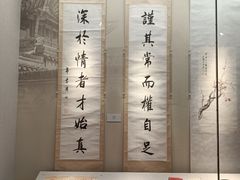 謹其常而權自足
深於情者才始真